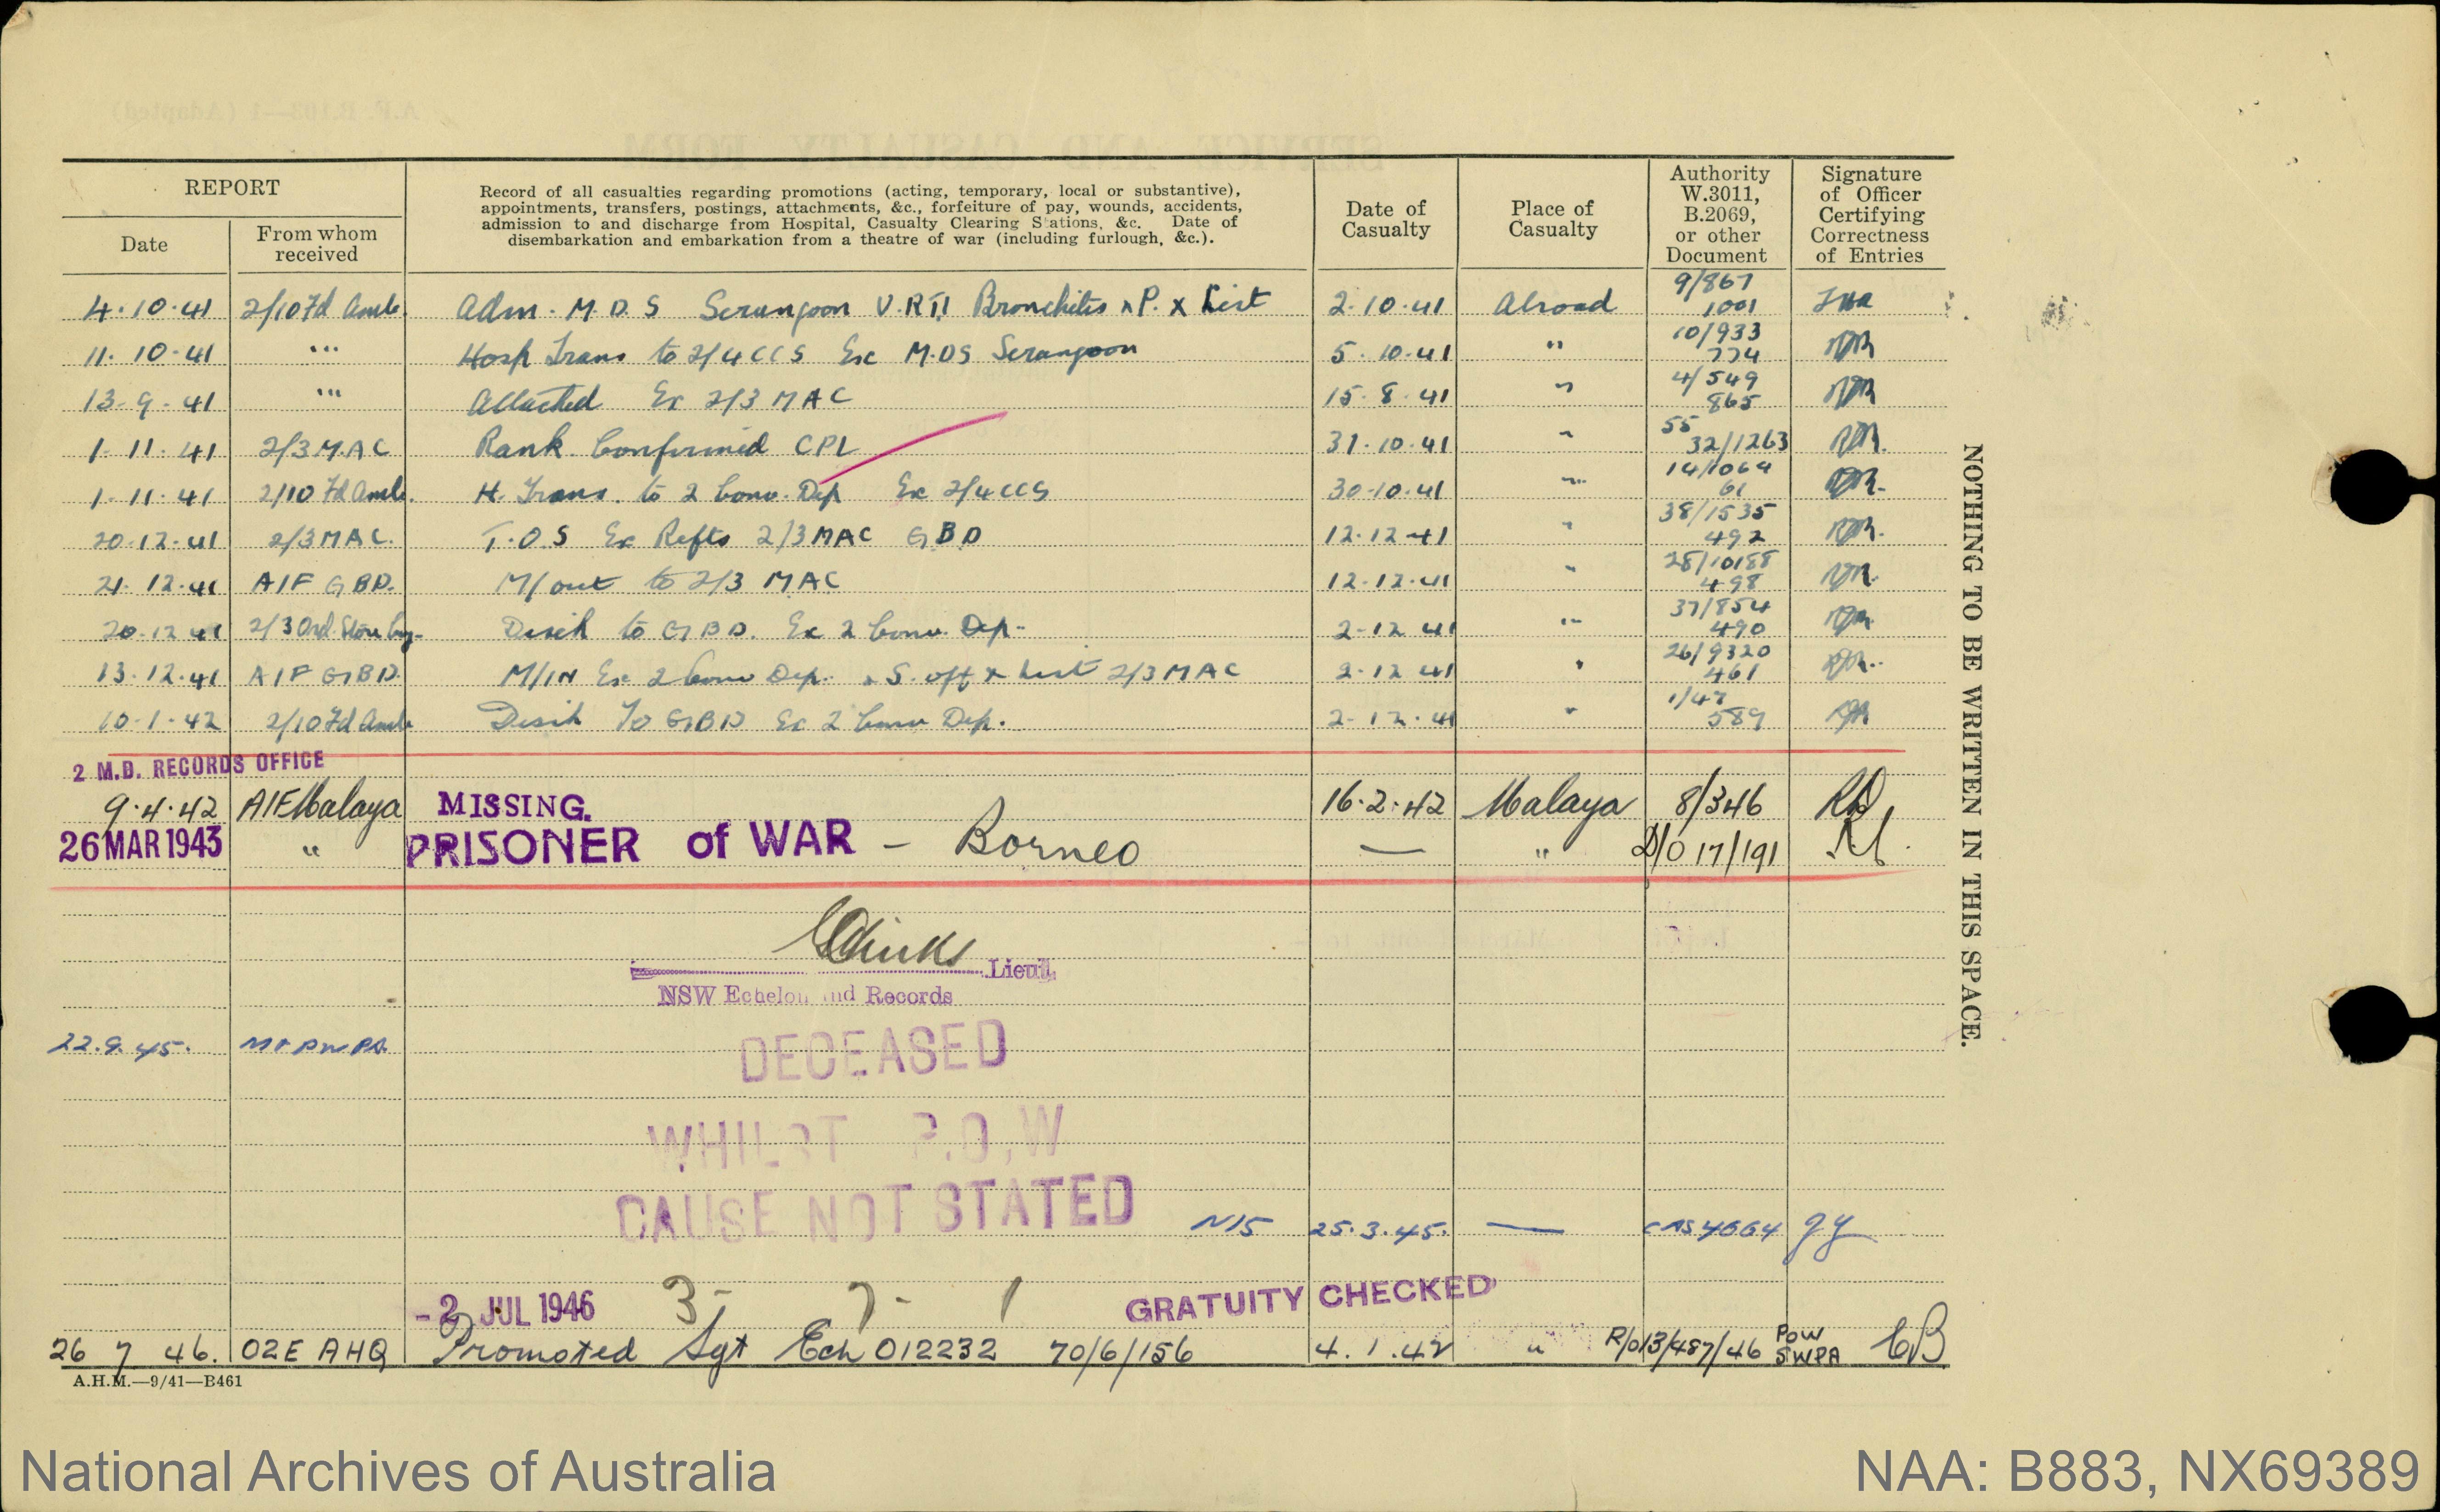 REPORT
Date
From whom received
Record of all casualties regarding promotions (acting, temporary, local or substantive),
appointments, transfers, postings, attachments, &c., forfeiture of pay, wounds, accidents,
admission to and discharge from Hospital, Casualty Clearing Stations, &c. Date of
disembarkation and embarkation from a theatre of war (including furlough, &c.).
Date of Casualty
Place of Casualty
Authority W.3011, B.2069, or other Document
Signature of Officer Certifying Correctness of Entries
4.10.41 2/10 Fd Amb. Adm. M.D.S Serangoon U.R.T.I Bronchitis x P. x List 2.10.41 Abroad 9/867 1001
11.10.41 "" Hosp Trans to 2/4 CCS Ex M.D.S Serangoon 5.10.41 " 10/933 774
13.9.41 "" Attached Ex 2/3 MAC 15.8.41 " 4/549 865
1.11.41 2/3 M.A.C Rank Confirmed CPL 31.10.41 " 55 32/1263
1.11.41 2/10 Fd Amb. H. Trans. to 2 Conv. Dep Ex 2/4 CCS 30.10.41 " 14/1064 61
20.12.41 2/3 MAC. T.O.S Ex Refts 2/3 MAC GBD 12.12.41 " 38/1535 492
21.12.41 AIF GBD. M/out to 2/3 MAC 12.12.41 " 28/10188 498
20.12.41 2/3 Ord. Store Coy. Disch to GBD. Ex 2 Conv. Dep. 2.12.41 " 37/854 490
13.12.41 AIF GBD. M/IN Ex 2 Conv Dep. x S. off x List 2/3 MAC 2.12.41 " 26/9320 461
10.1.42 2/10 Fd Amb Disch To GBD Ex 2 Conv Dep. 2.12.41 " 1/47 589
2 M.D. RECORDS OFFICE
9.4.42 AIF Malaya MISSING. 16.2.42 Malaya 8/346
26 MAR 1943 " PRISONER of WAR - Borneo — " D/O 17/191
Lieut.
NSW Echelon and Records
22.9.45.
DECEASED
WHILST P.O.W
CAUSE NOT STATED N15 25.3.45. — CAS 4664
-2 JUL 1946 3- 7- 1 GRATUITY CHECKED
26 7 46. 02E AHQ Promoted Sgt Ech 012232 70/6/156 4.1.42 " R/O13/487/46 POW SWPA CB
A.H.M.—9/41—B461
NOTHING TO BE WRITTEN IN THIS SPACE.
National Archives of Australia
NAA: B883, NX69389